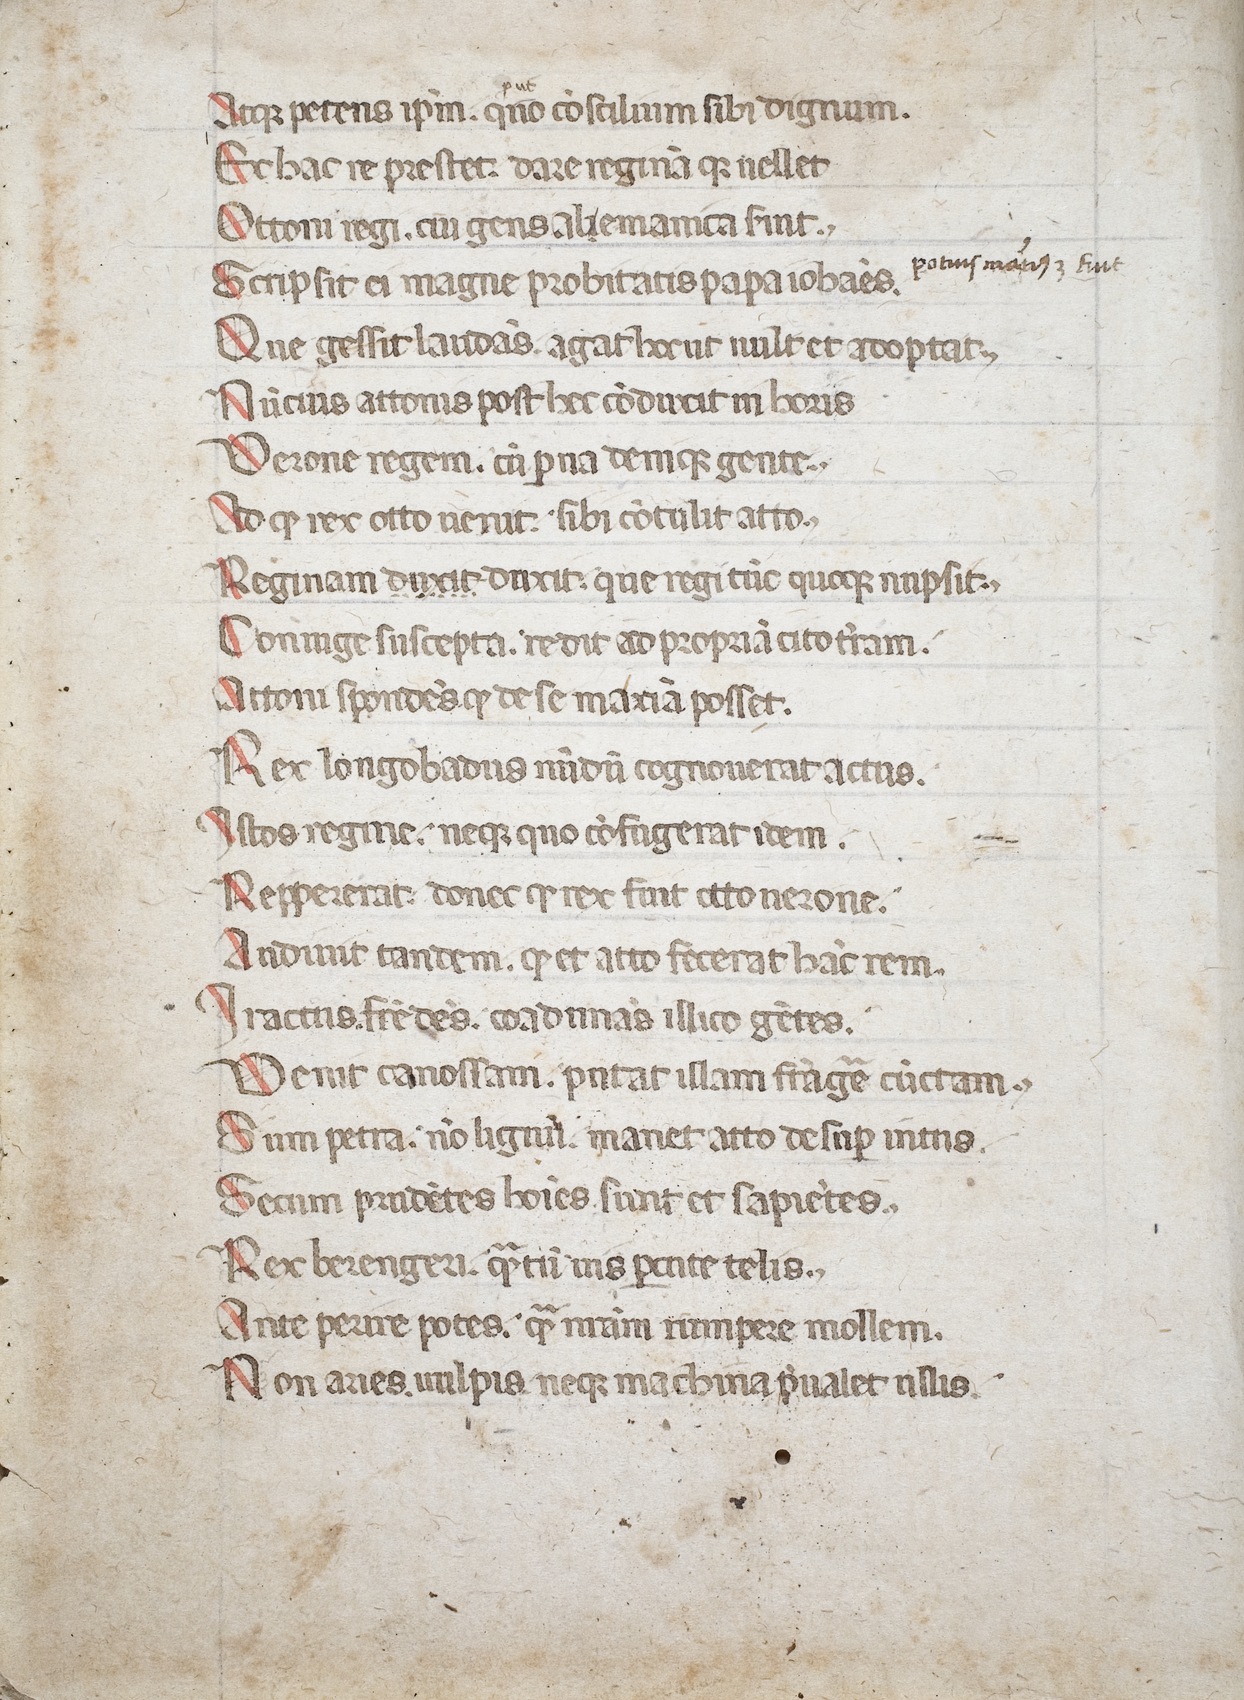 put
Atq; petens ip̄m. q̄no cōsciluim sibi dignum.
Ex hac re prestet. dare reginā q; uellet
Ottoni regi. cui gens alemanica fuit.
Scripsit ei magne probitatis papa iohāes.
potius fuit
Que gessit laudās. agat hoc ut uult et adoptat.
Nūcius attonis post hec cōduxit in horis
Verone regem. cū parua deniq; gente.
Ad quem rex otto uenit. sibi cōtulit atto.
Reginam duxit duxit. que regi tūc quoq; nupsit.
Coniuge suscepta. redit ad propriā cito t̄ram.
Attoni spondēs q de se marciā posset.
Rex longobadus nūdū cognouerat actus.
Istos regine. neq; quo cōfugerat idem.
Reppererat. donec q rex fuit otto uerone.
Audiuit tandem. q et atto fecerat hāc rem.
Iractus. frēdēs. coadunās illico gētes.
Venit canossam. putat illam frāgē cūctam.
Sum petra. nō lignū. manet atto desup intus.
Secum prudētes hoīes sunt et sapiētes.
Rex berengeri. qtū uis pcute telis.
Ante perire potes. q̄ murām rumpere mollem.
Non aries. uulpis neq; machina p̄ualet ullis.